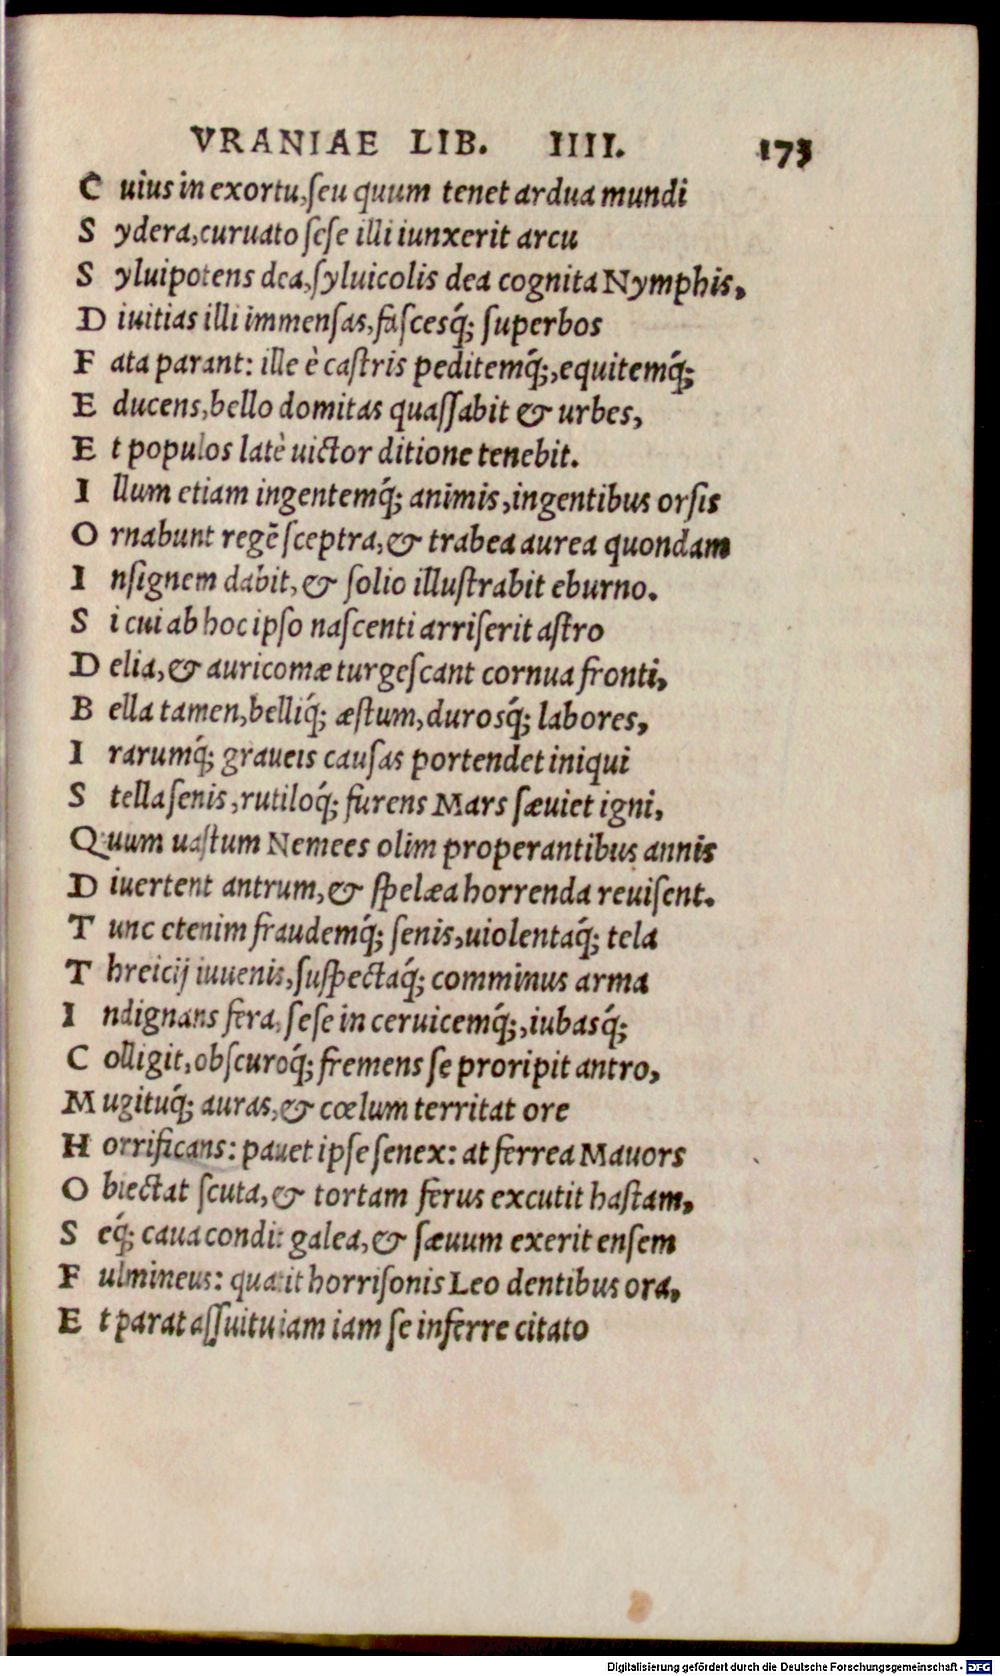 VRANIAE LIB. IIII. 173
C uius in exortu, seu quum tenet ardua mundi
S ydera, curuato sese illi iunxerit arcu
S yluipotens dea, syluicolis dea cognita Nymphis,
D iuitias illi immensas, fascesq́; superbos
F ata parant: ille è castris peditemq́;, equitemq́;
E ducens, bello domitas quassabit & urbes,
E t populos latè uictor ditione tenebit.
I llum etiam ingentemq́; animis, ingentibus orsis
O rnabunt regē sceptra, & trabea aurea quondam
I nsignem dabit, & solio illustrabit eburno.
S i cui ab hoc ipso nascenti arriserit astro
D elia, & auricomæ turgescant cornua fronti,
B ella tamen, belliq́; æstum, durosq́; labores,
I rarumq́; graueis causas portendet iniqui
S tella senis, rutiloq́; furens Mars sæuiet igni,
Q uum uastum Nemees olim properantibus annis
D iuertent antrum, & spelæa horrenda reuisent.
T unc etenim fraudemq́; senis, uiolentaq́; tela
T hreicij iuuenis, suspectaq́; comminus arma
I ndignans fera, sese in ceruicemq́;, iubasq́;
C olligit, obscuroq́; fremens se proripit antro,
M ugituq́; auras, & cœlum territat ore
H orrificans: pauet ipse senex: at ferrea Mauors
O biectat scuta, & tortam ferus excutit hastam,
S eq́; caua condit galea, & sæuum exerit ensem
F ulmineus: quatit horrisonis Leo dentibus ora,
E t parat assuitu iam iam se inferre citato
Digitalisierung gefördert durch die Deutsche Forschungsgemeinschaft - DFG